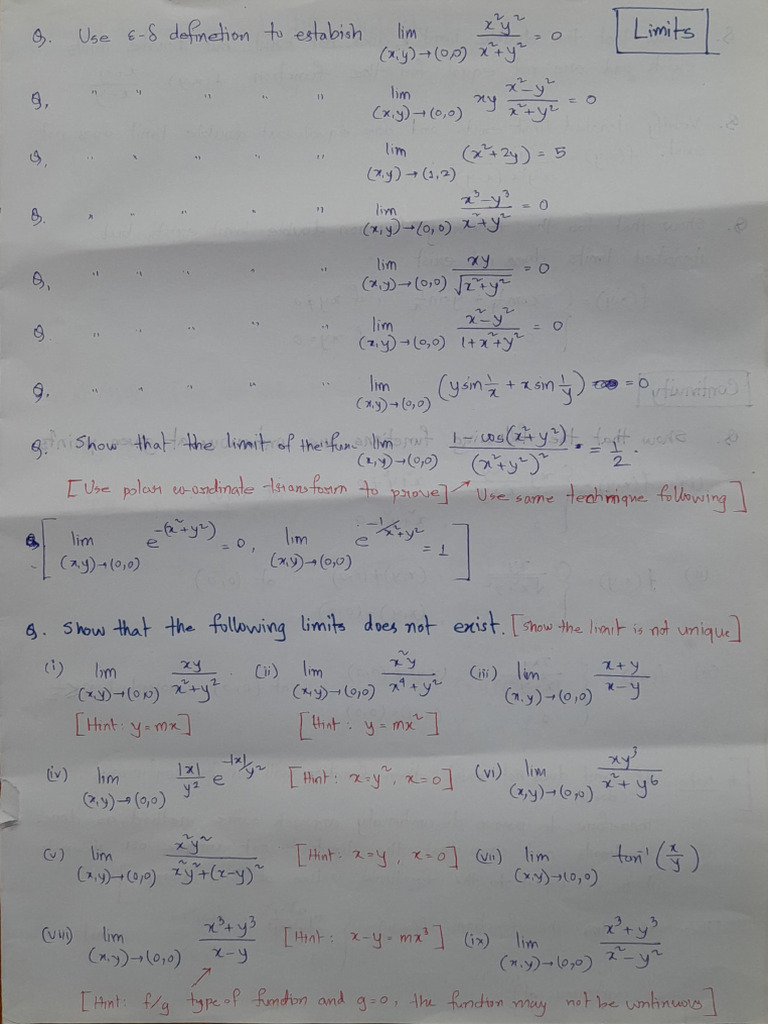 Q. Use ε-δ defination to estabish lim (x,y)→(0,0) x²y²/(x²+y²) = 0 [Limits]
Q, " " " " " lim (x,y)→(0,0) xy (x²-y²)/(x²+y²) = 0
Q, " " " " " lim (x,y)→(1,2) (x²+2y) = 5
Q. " " " " " lim (x,y)→(0,0) (x³-y³)/(x²+y²) = 0
Q, " " " " " lim (x,y)→(0,0) xy/√(x²+y²) = 0
Q. " " " " " lim (x,y)→(0,0) (x²-y²)/(1+x²+y²) = 0
Q. " " " " " lim (x,y)→(0,0) (y sin 1/x + x sin 1/y) = 0
Q. Show that the limit of the fun. lim (x,y)→(0,0) (1-cos(x²+y²))/(x²+y²)² = 1/2.
[Use polar co-ordinate transform to prove] Use same technique following]
Q [lim (x,y)→(0,0) e^(-(x²+y²)) = 0, lim (x,y)→(0,0) e^(-1/x²+y²) = 1]
Q. Show that the following limits does not exist. [show the limit is not unique]
(i) lim (x,y)→(0,0) xy/(x²+y²) (ii) lim (x,y)→(0,0) x²y/(x⁴+y²) (iii) lim (x,y)→(0,0) (x+y)/(x-y)
[Hint: y=mx] [Hint: y=mx²]
(iv) lim (x,y)→(0,0) |x|/y² e^(-|x|/y²) [Hint: x=y², x=0] (vi) lim (x,y)→(0,0) xy³/(x²+y⁶)
(v) lim (x,y)→(0,0) x²y²/(x²y²+(x-y)²) [Hint: x=y, x=0] (vii) lim (x,y)→(0,0) tan⁻¹(x/y)
(viii) lim (x,y)→(0,0) (x³+y³)/(x-y) [Hint: x-y=mx³] (ix) lim (x,y)→(0,0) (x³+y³)/(x²-y²)
[Hint: f/g type of function and g=0, the function may not be continuous]